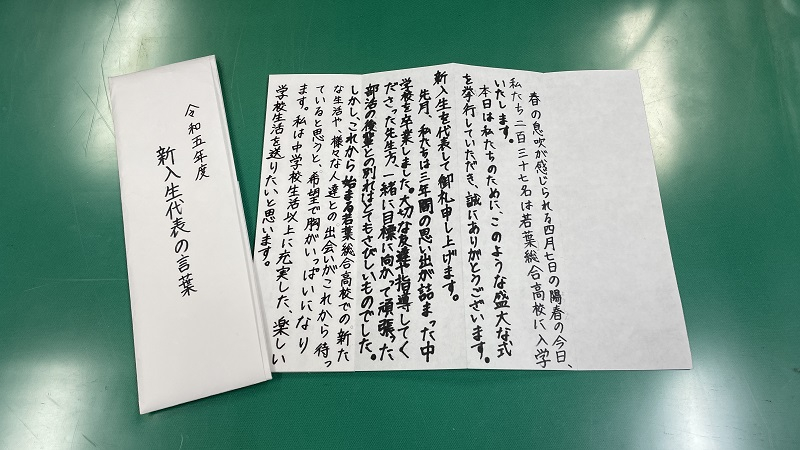 令和五年度
新入生代表の言葉
春の息吹が感じられる四月七日の陽春の今日、
私たち二百三十七名は若葉総合高校に入学
いたします。
本日は私たちのために、このような盛大な式
を挙行していただき、誠にありがとうございます。
新入生を代表して御礼申し上げます。
先月、私たちは三年間の思い出が詰まった中
学校を卒業しました。大切な友達や指導してく
ださった先生方、一緒に目標に向かって頑張った
部活の後輩との別れはとてもさびしいものでした。
しかし、これから始まる若葉総合高校での新た
な生活や、様々な人達との出会いがこれから待っ
ていると思うと、希望で胸がいっぱいになり
ます。私は中学校生活以上に充実した、楽しい
学校生活を送りたいと思います。